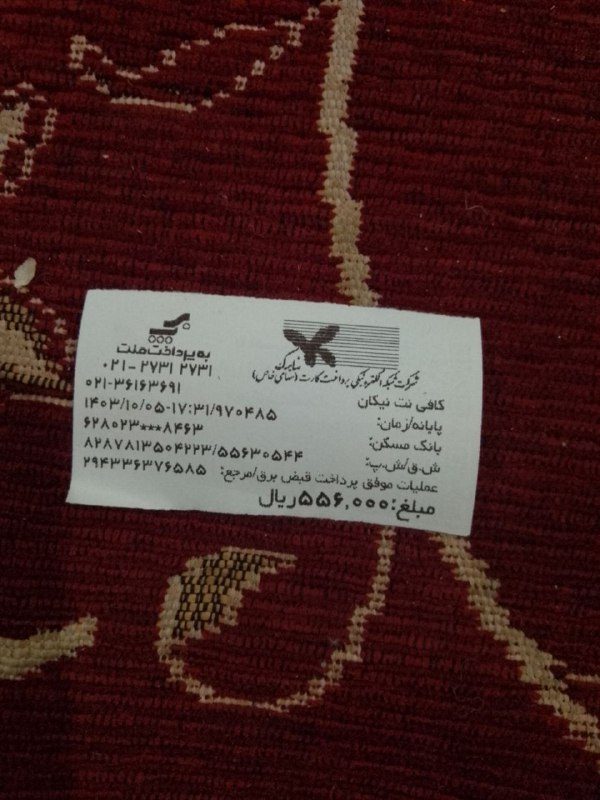 به پرداخت ملت
۰۲۱- ۲۷۳۱ ۲۷۳۱
شرکت شبکه الکترونیکی پرداخت کارت (سهامی خاص)
کافی نت نیکان ۰۲۱-۳۶۱۶۳۶۹۱
پایانه/زمان: ۱۴۰۳/۱۰/۰۵-۱۷:۳۱/۹۷۰۴۸۵
بانک مسکن: ۶۲۸۰۲۳***۸۴۶۳
ش.ق/ش.پ: ۸۲۸۷۸۱۳۵۰۴۲۲۳/۵۵۶۳۰۵۴۴
عملیات موفق پرداخت قبض برق/مرجع: ۲۹۴۳۳۶۳۷۶۵۸۵
مبلغ:۵۵۶,۰۰۰ریال